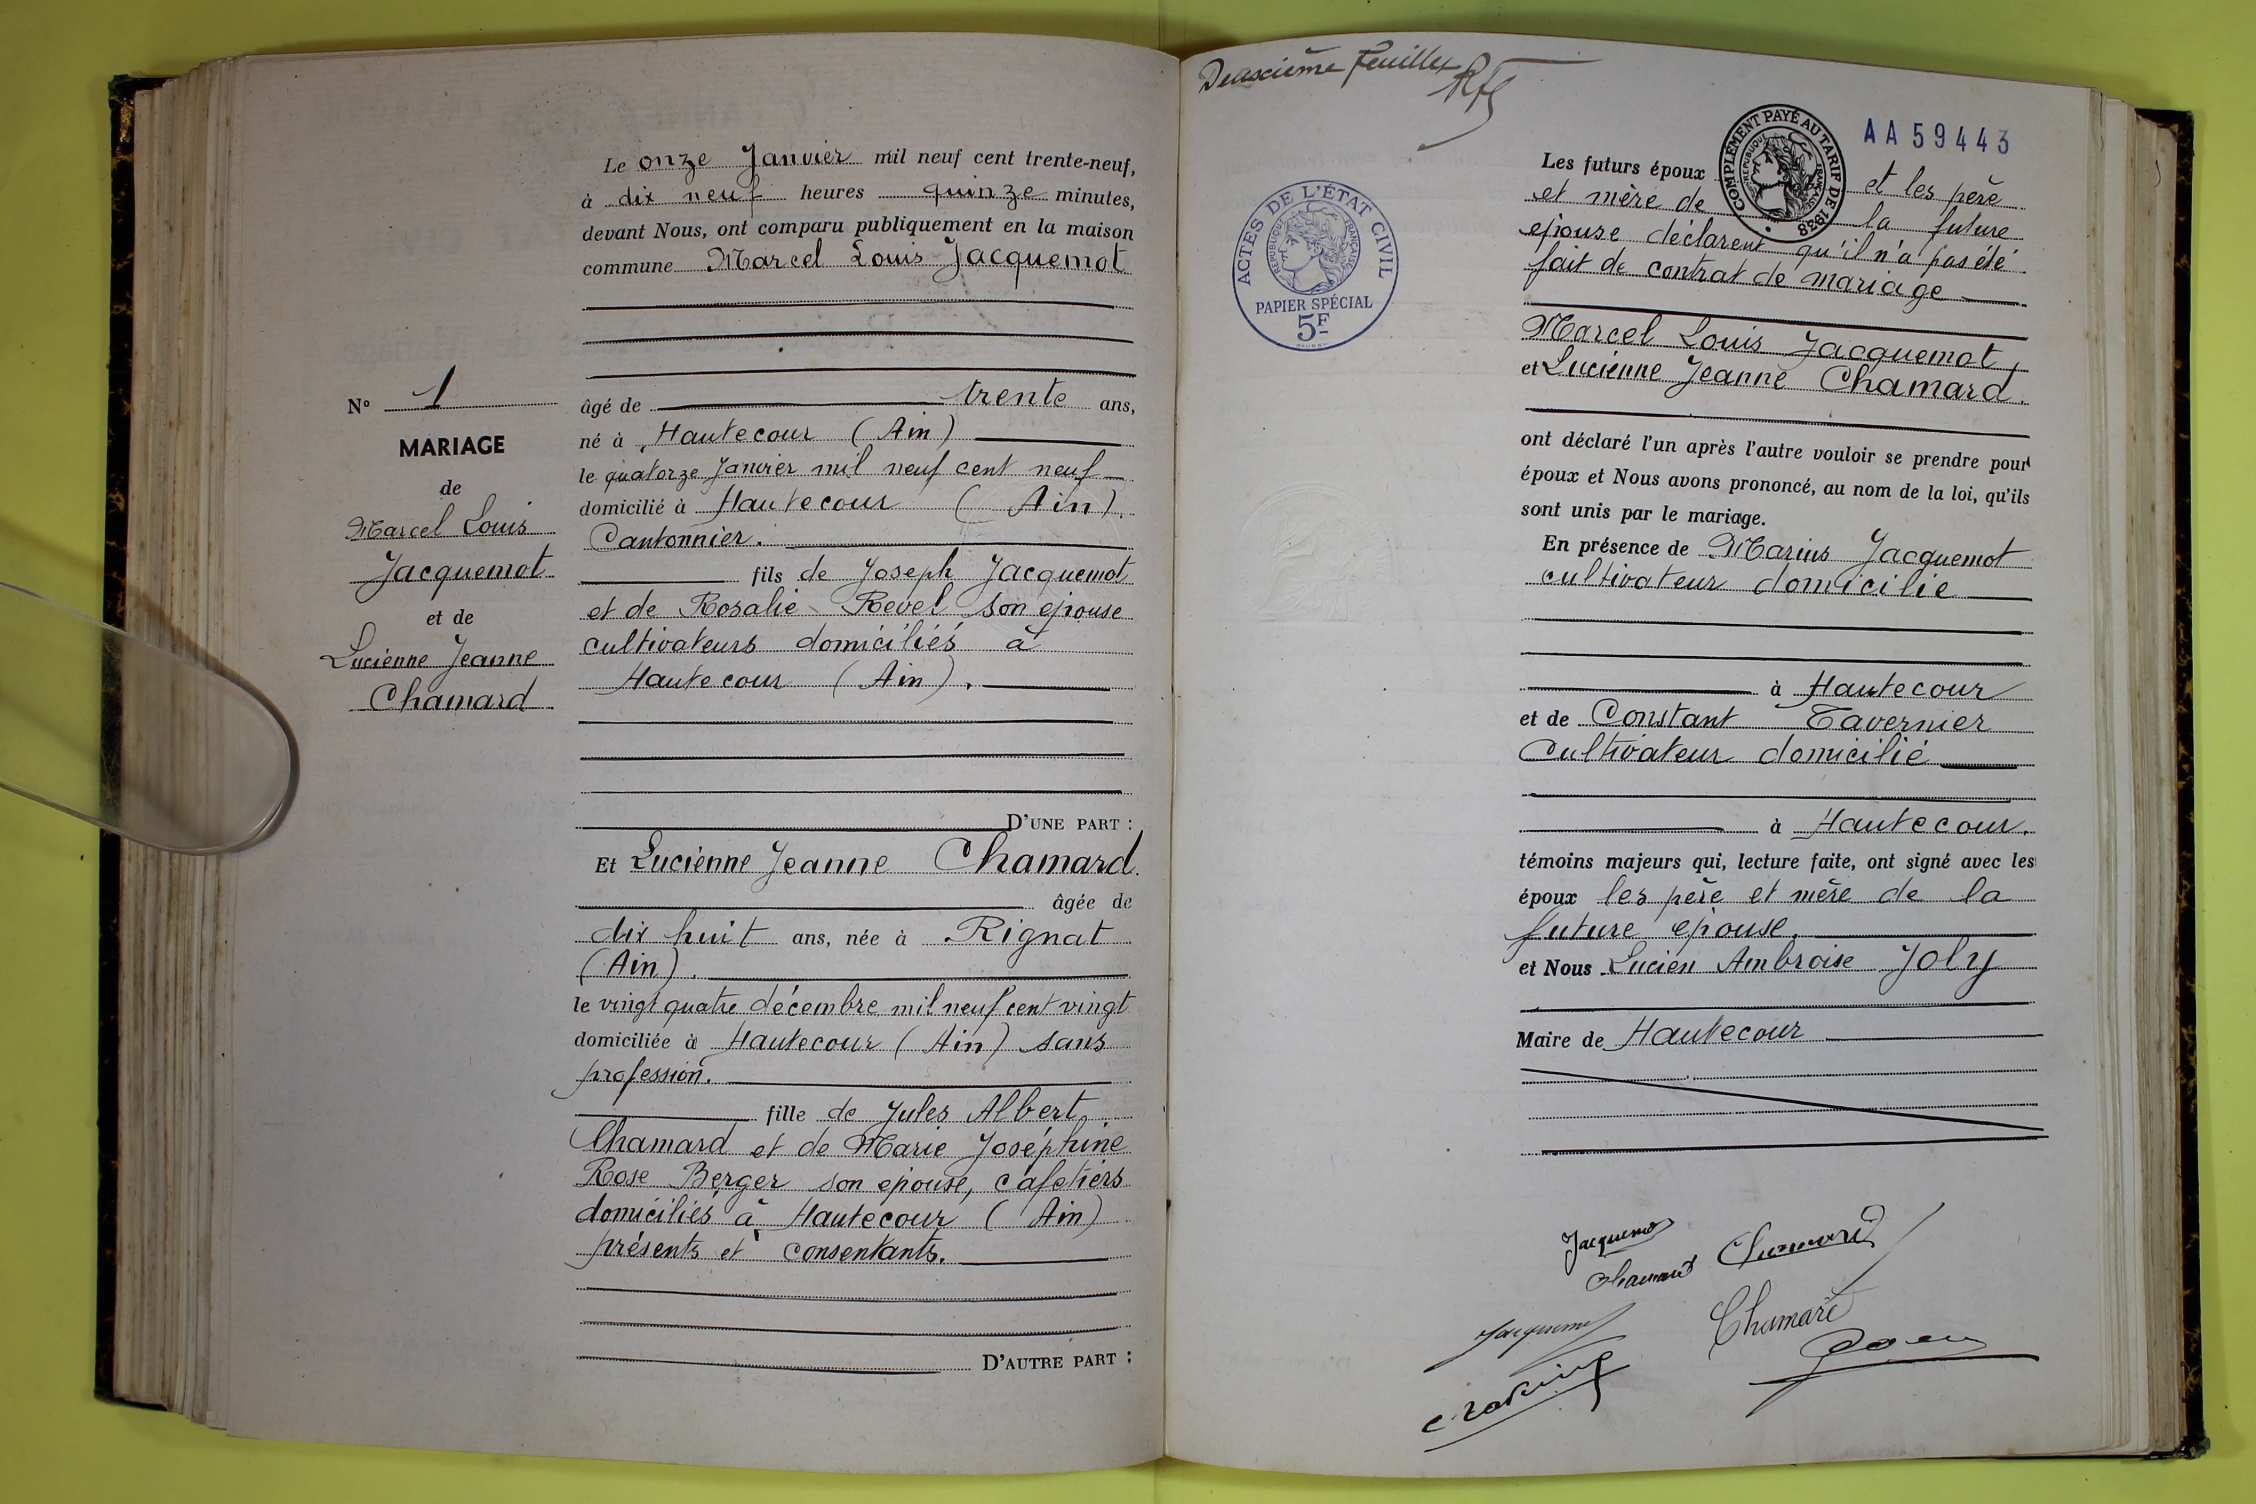 Nº 1
MARIAGE
de
Marcel Louis
Jacquemot
et de
Lucienne Jeanne
Chamard
Le onze Janvier mil neuf cent trente-neuf,
à dix neuf heures quinze minutes,
devant Nous, ont comparu publiquement en la maison
commune Marcel Louis Jacquemot
âgé de trente ans,
né à Hautecour (Ain)
le quatorze Janvier mil neuf cent neuf
domicilié à Hautecour (Ain).
Cantonnier.
fils de Joseph Jacquemot
et de Rosalie Revel son épouse
cultivateurs domiciliés à
Hautecour (Ain).
D'UNE PART :
Et Lucienne Jeanne Chamard.
âgée de
dix huit ans, née à Rignat
(Ain).
le vingt quatre décembre mil neuf cent vingt
domiciliée à Hautecour (Ain) sans
profession.
fille de Jules Albert
Chamard et de Marie Joséphine
Rose Berger son épouse, cafetiers
domiciliés à Hautecour (Ain)
présents et consentants.
D'AUTRE PART :
Deuxième feuillet
ACTES DE L'ÉTAT CIVIL
RÉPUBLIQUE FRANÇAISE
PAPIER SPÉCIAL
5F
COMPLÉMENT PAYÉ AU TARIF DE 1938
RÉPUBLIQUE FRANÇAISE
AA59443
Les futurs époux et les père
et mère de la future
épouse déclarent qu'il n'a pas été
fait de contrat de mariage
Marcel Louis Jacquemot,
et Lucienne Jeanne Chamard.
ont déclaré l'un après l'autre vouloir se prendre pour
époux et Nous avons prononcé, au nom de la loi, qu'ils
sont unis par le mariage.
En présence de Marius Jacquemot
cultivateur domicilié
à Hautecour
et de Constant Tavernier
Cultivateur domicilié
à Hautecour.
témoins majeurs qui, lecture faite, ont signé avec les
époux les père et mère de la
future épouse.
et Nous Lucien Ambroise Joly
Maire de Hautecour
Jacquemot
Chamard Chamard
Jacquemot Chamard